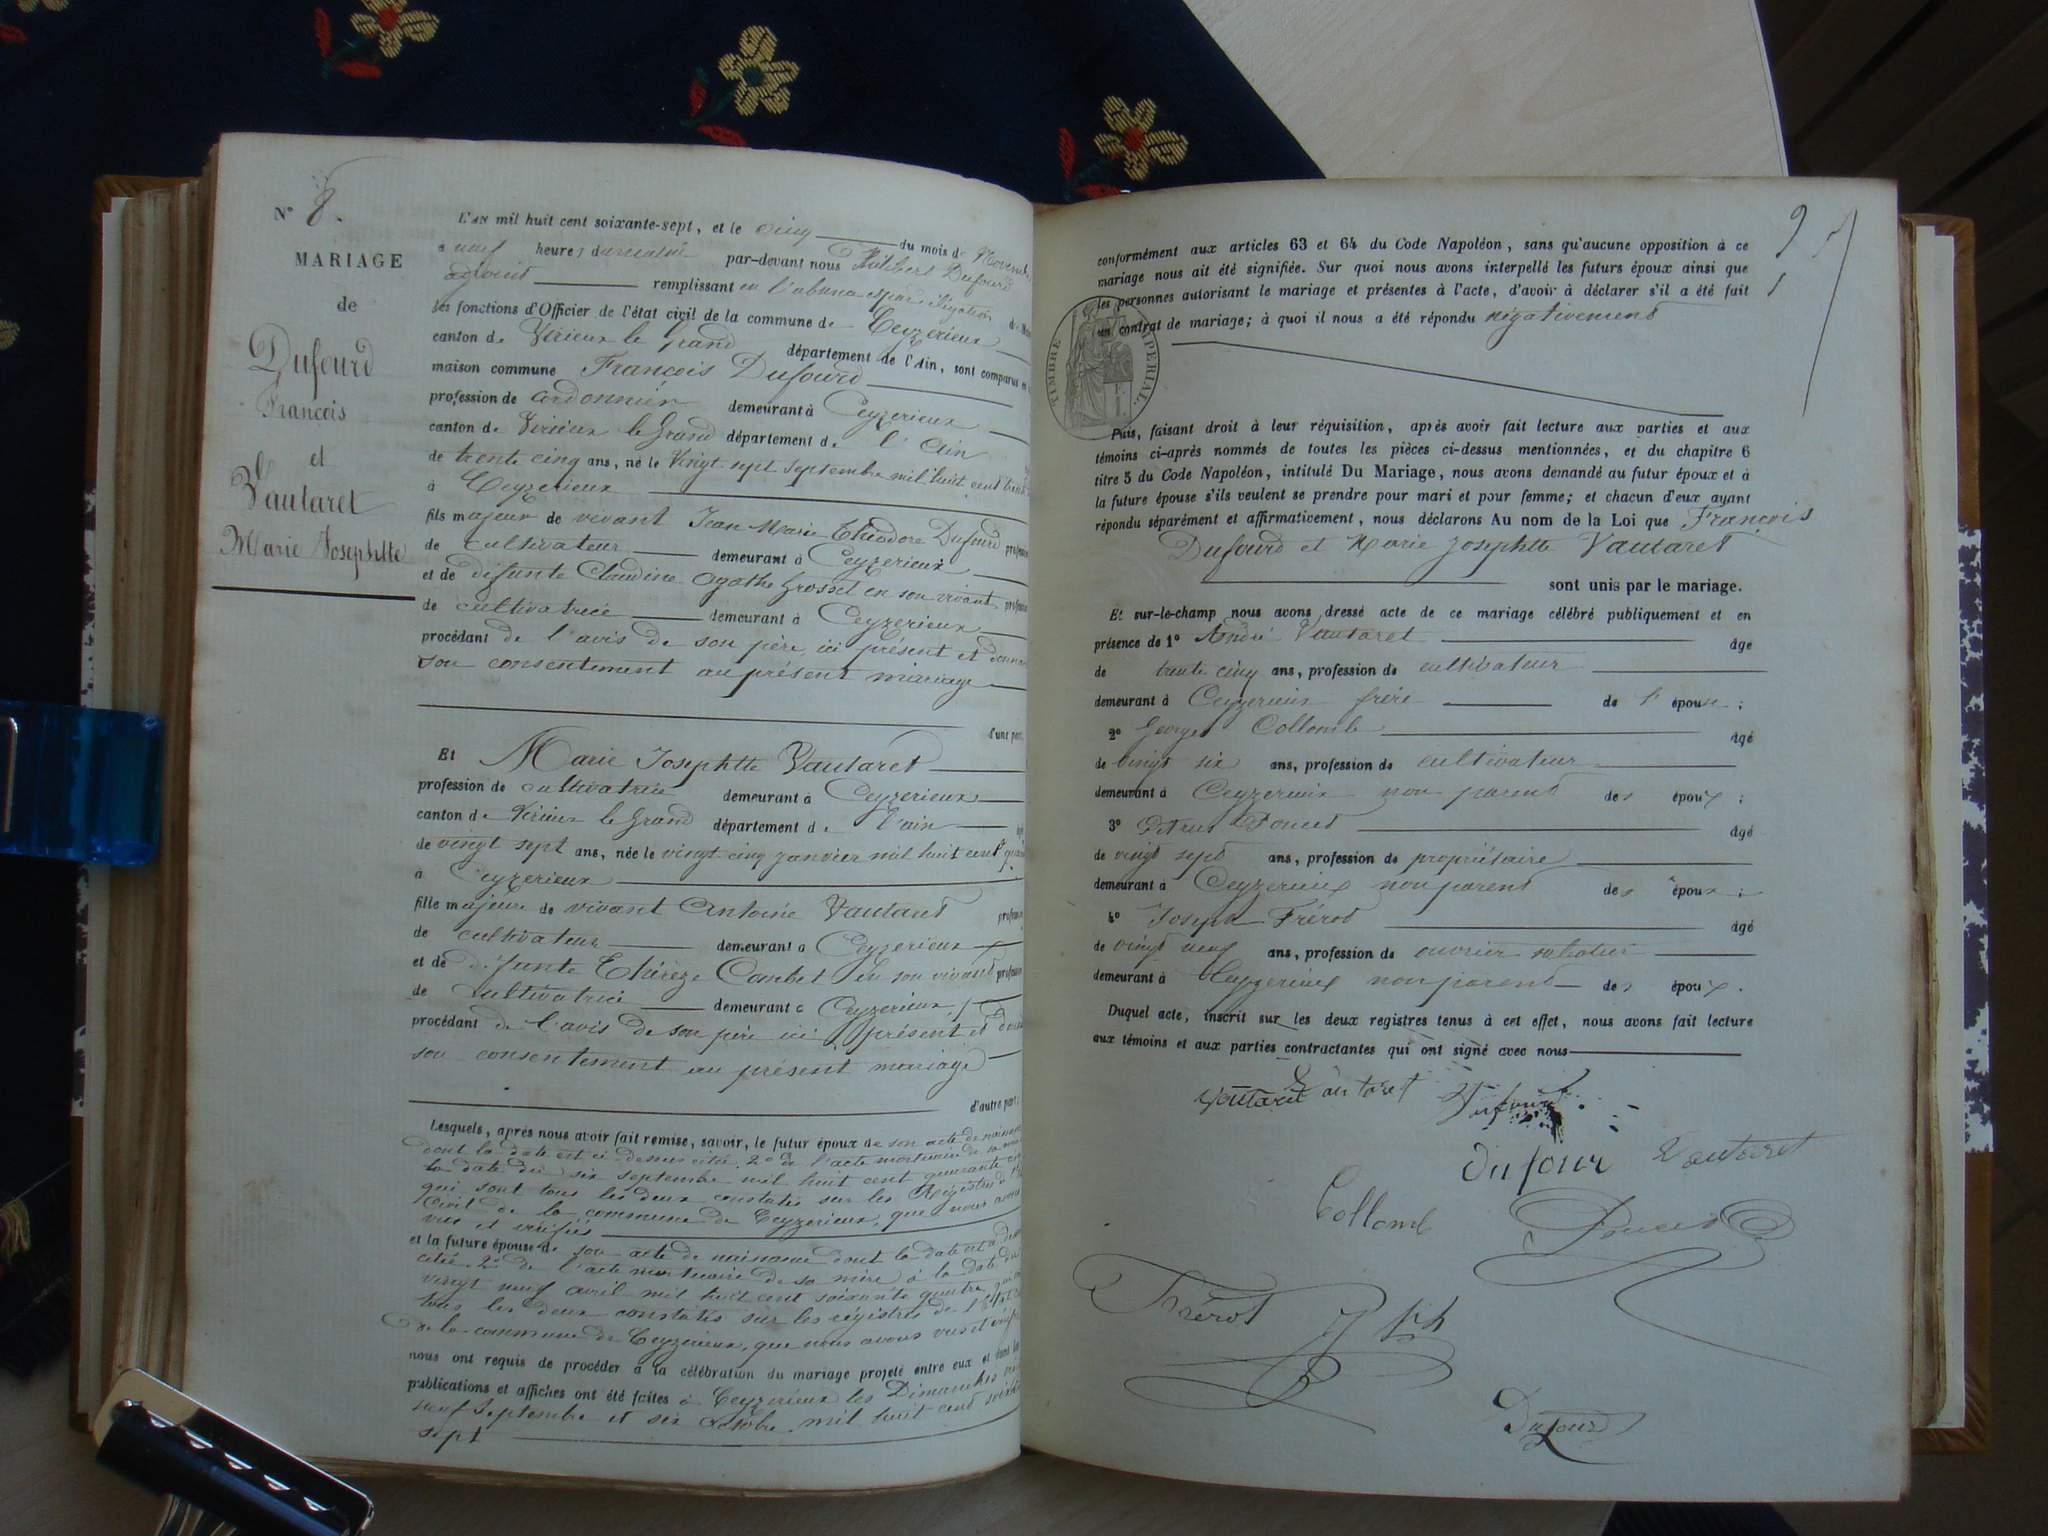 N° 8.
MARIAGE
de
Dufourd
François
et
Vautaret
Marie Josephtte
L'AN mil huit cent soixante-sept, et le cinq du mois de Novembre
à neuf heures du matin par-devant nous Philibert Dufourd
adjoint remplissant en l'absence et par délégation
les fonctions d'Officier de l'état civil de la commune de Ceyzerieux
canton de Virieux le Grand département de l'Ain, sont comparus en
maison commune François Dufourd
profession de cordonnier demeurant à Ceyzerieux
canton de Virieux le Grand département de l'Ain
de trente cinq ans, né le Vingt sept septembre mil huit cent trente
à Ceyzerieux
fils majeur de vivant Jean Marie Théodore Dufourd profession
de cultivateur demeurant à Ceyzerieux
et de défunte Claudine Agathe Grosset en son vivant profession
de cultivatrice demeurant à Ceyzerieux
procédant de l'avis de son père ici présent et donnant
son consentement au présent mariage
d'une part,
Et Marie Josephtte Vautaret
profession de cultivatrice demeurant à Ceyzerieux
canton de Virieux le Grand département de l'ain
de vingt sept ans, née le vingt cinq janvier mil huit cent
à Ceyzerieux
fille majeure de vivant Antoine Vautaret profession
de cultivateur demeurant à Ceyzerieux
et de défunte Thérèze Combet en son vivant profession
de cultivatrice demeurant à Ceyzerieux
procédant de l'avis de son père ici présent et donne
son consentement au présent mariage
d'autre part;
Lesquels, après nous avoir fait remise, savoir, le futur époux de son acte de naissance
dont la date est ci dessus citée. 2° de l'acte mortuaire de sa mère
la date du six septembre mil huit cent quarante
qui sont tous les deux constatés sur les Régistres de
Civil de la commune de Ceyzerieux, que nous avons
vus et vérifiés
et la future épouse de son acte de naissance dont la date est ci dessus
citée 2° de l'acte mortuaire de sa mère à la date du
vingt neuf avril mil huit cent soixante quatre qui
tous les deux constatés sur les régistres de l'État
de la commune de Ceyzerieux, que nous avons vus et vérifiés
nous ont requis de procéder à la célébration du mariage projeté entre eux et dont les
publications et affiches ont été faites à Ceyzerieux les Dimanches
neuf Septembre et six octobre mil huit cent soixante
sept
conformément aux articles 63 et 64 du Code Napoléon, sans qu'aucune opposition à ce
mariage nous ait été signifiée. Sur quoi nous avons interpellé les futurs époux ainsi que
les personnes autorisant le mariage et présentes à l'acte, d'avoir à déclarer s'il a été fait
un contrat de mariage; à quoi il nous a été répondu négativement
TIMBRE IMPERIAL.
Puis, faisant droit à leur réquisition, après avoir fait lecture aux parties et aux
témoins ci-après nommés de toutes les pièces ci-dessus mentionnées, et du chapitre 6
titre 5 du Code Napoléon, intitulé Du Mariage, nous avons demandé au futur époux et à
la future épouse s'ils veulent se prendre pour mari et pour femme; et chacun d'eux ayant
répondu séparément et affirmativement, nous déclarons Au nom de la Loi que François
Dufourd et Marie Josephtte Vautaret
sont unis par le mariage.
Et sur-le-champ nous avons dressé acte de ce mariage célébré publiquement et en
présence de 1° André Vautaret âgé
de trente cinq ans, profession de cultivateur
demeurant à Ceyzerieux frère de l'épouse;
2° Georges Collomb âgé
de vingt six ans, profession de cultivateur
demeurant à Ceyzerieux non parent des époux;
3° Pétrus Poncet âgé
de vingt sept ans, profession de propriétaire
demeurant à Ceyzerieux non parent des époux;
4° Joseph Frérot âgé
de vingt neuf ans, profession de ouvrier sabotier
demeurant à Ceyzerieux non parent des époux.
Duquel acte, inscrit sur les deux registres tenus à cet effet, nous avons fait lecture
aux témoins et aux parties contractantes qui ont signé avec nous
Vautaret Vautaret Dufourd
Dufour Vautaret
Collomb Poncet
Frérot Jph
Dufourd